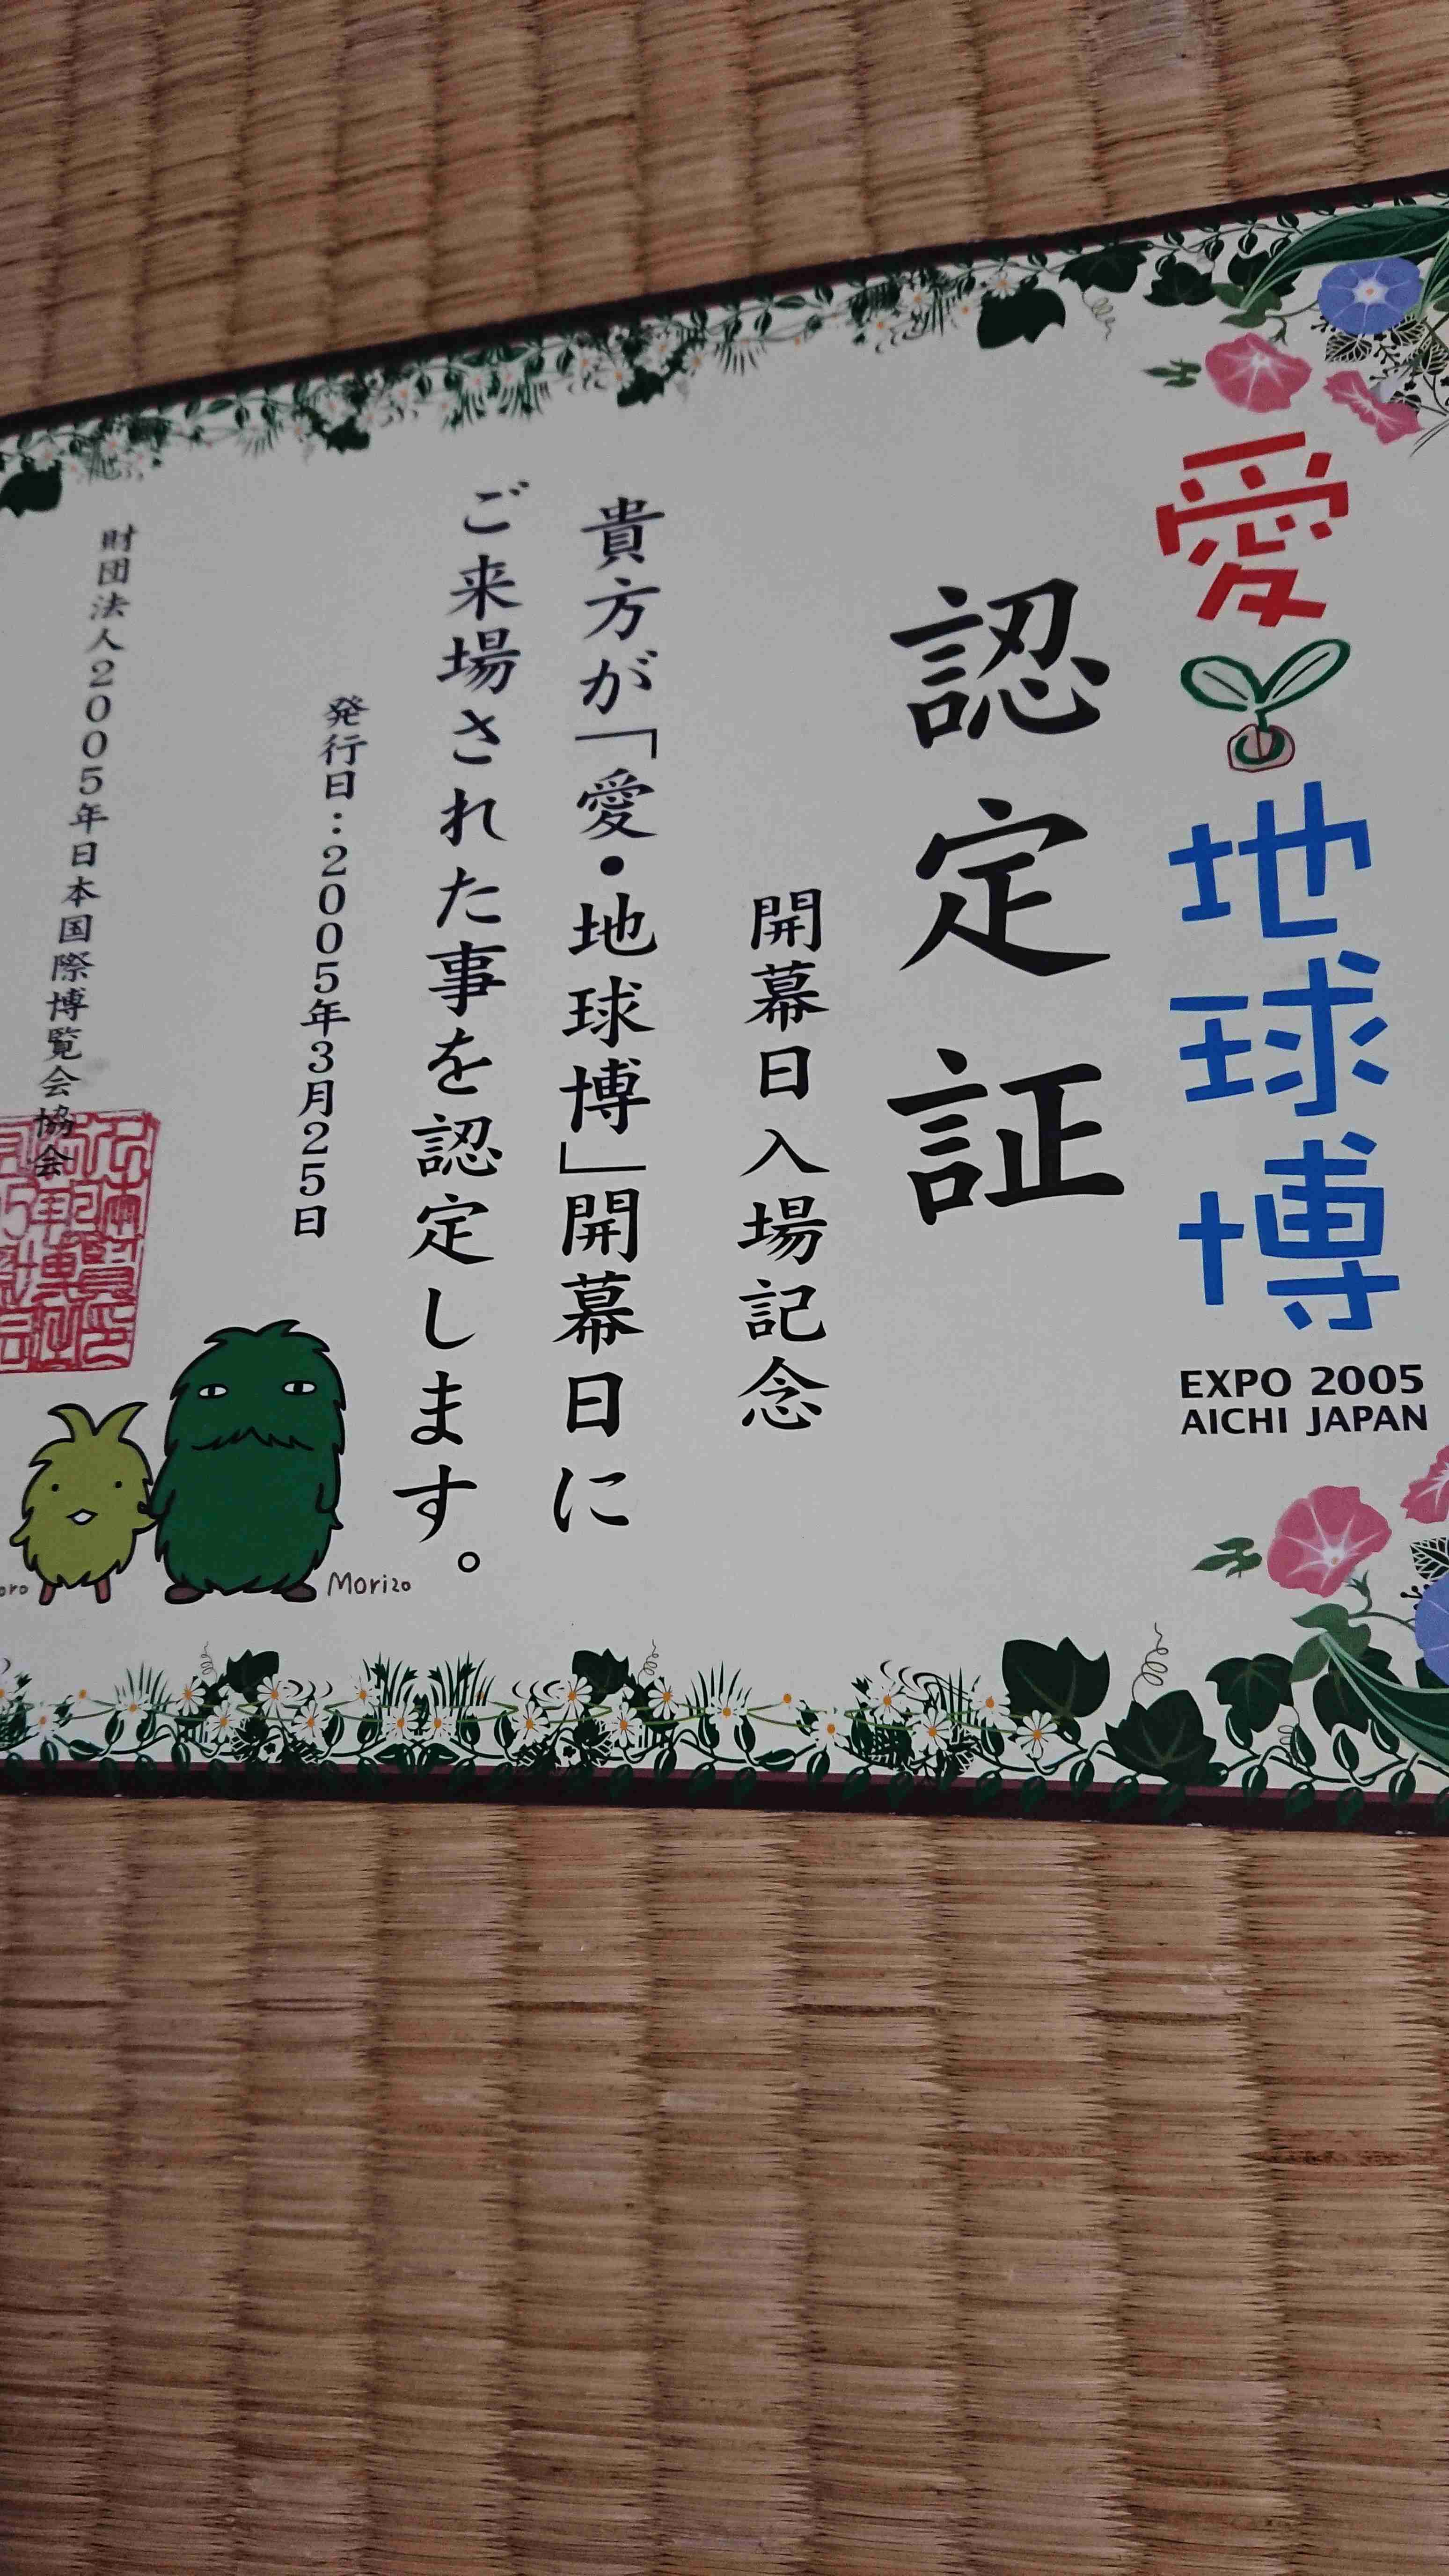 愛・地球博
EXPO 2005
AICHI JAPAN
認定証
開幕日入場記念
貴方が「愛・地球博」開幕日に
ご来場された事を認定します。
発行日：2005年3月25日
財団法人2005年日本国際博覧会協会
Morizo